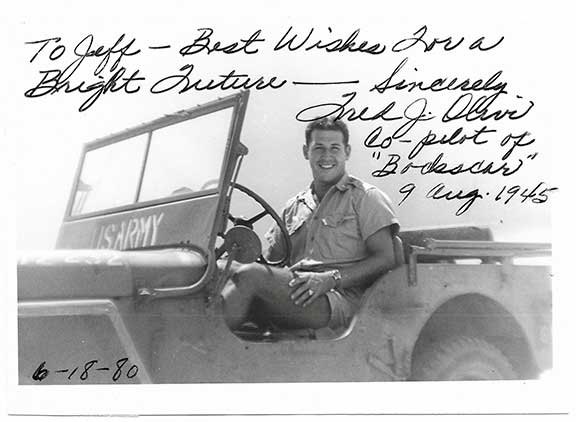 To Jeff — Best Wishes For a
Bright Future — Sincerely
Fred J. Olivi
Co-pilot of
"Bockscar"
9 Aug. 1945
US ARMY
6-18-80